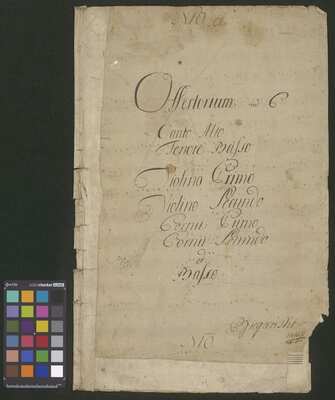 Offertorium in C
Canto Alto
Tenore Basso
Violino Primo
Violino Secundo
Cornu Primo
Cornu Secundo
et
Basso